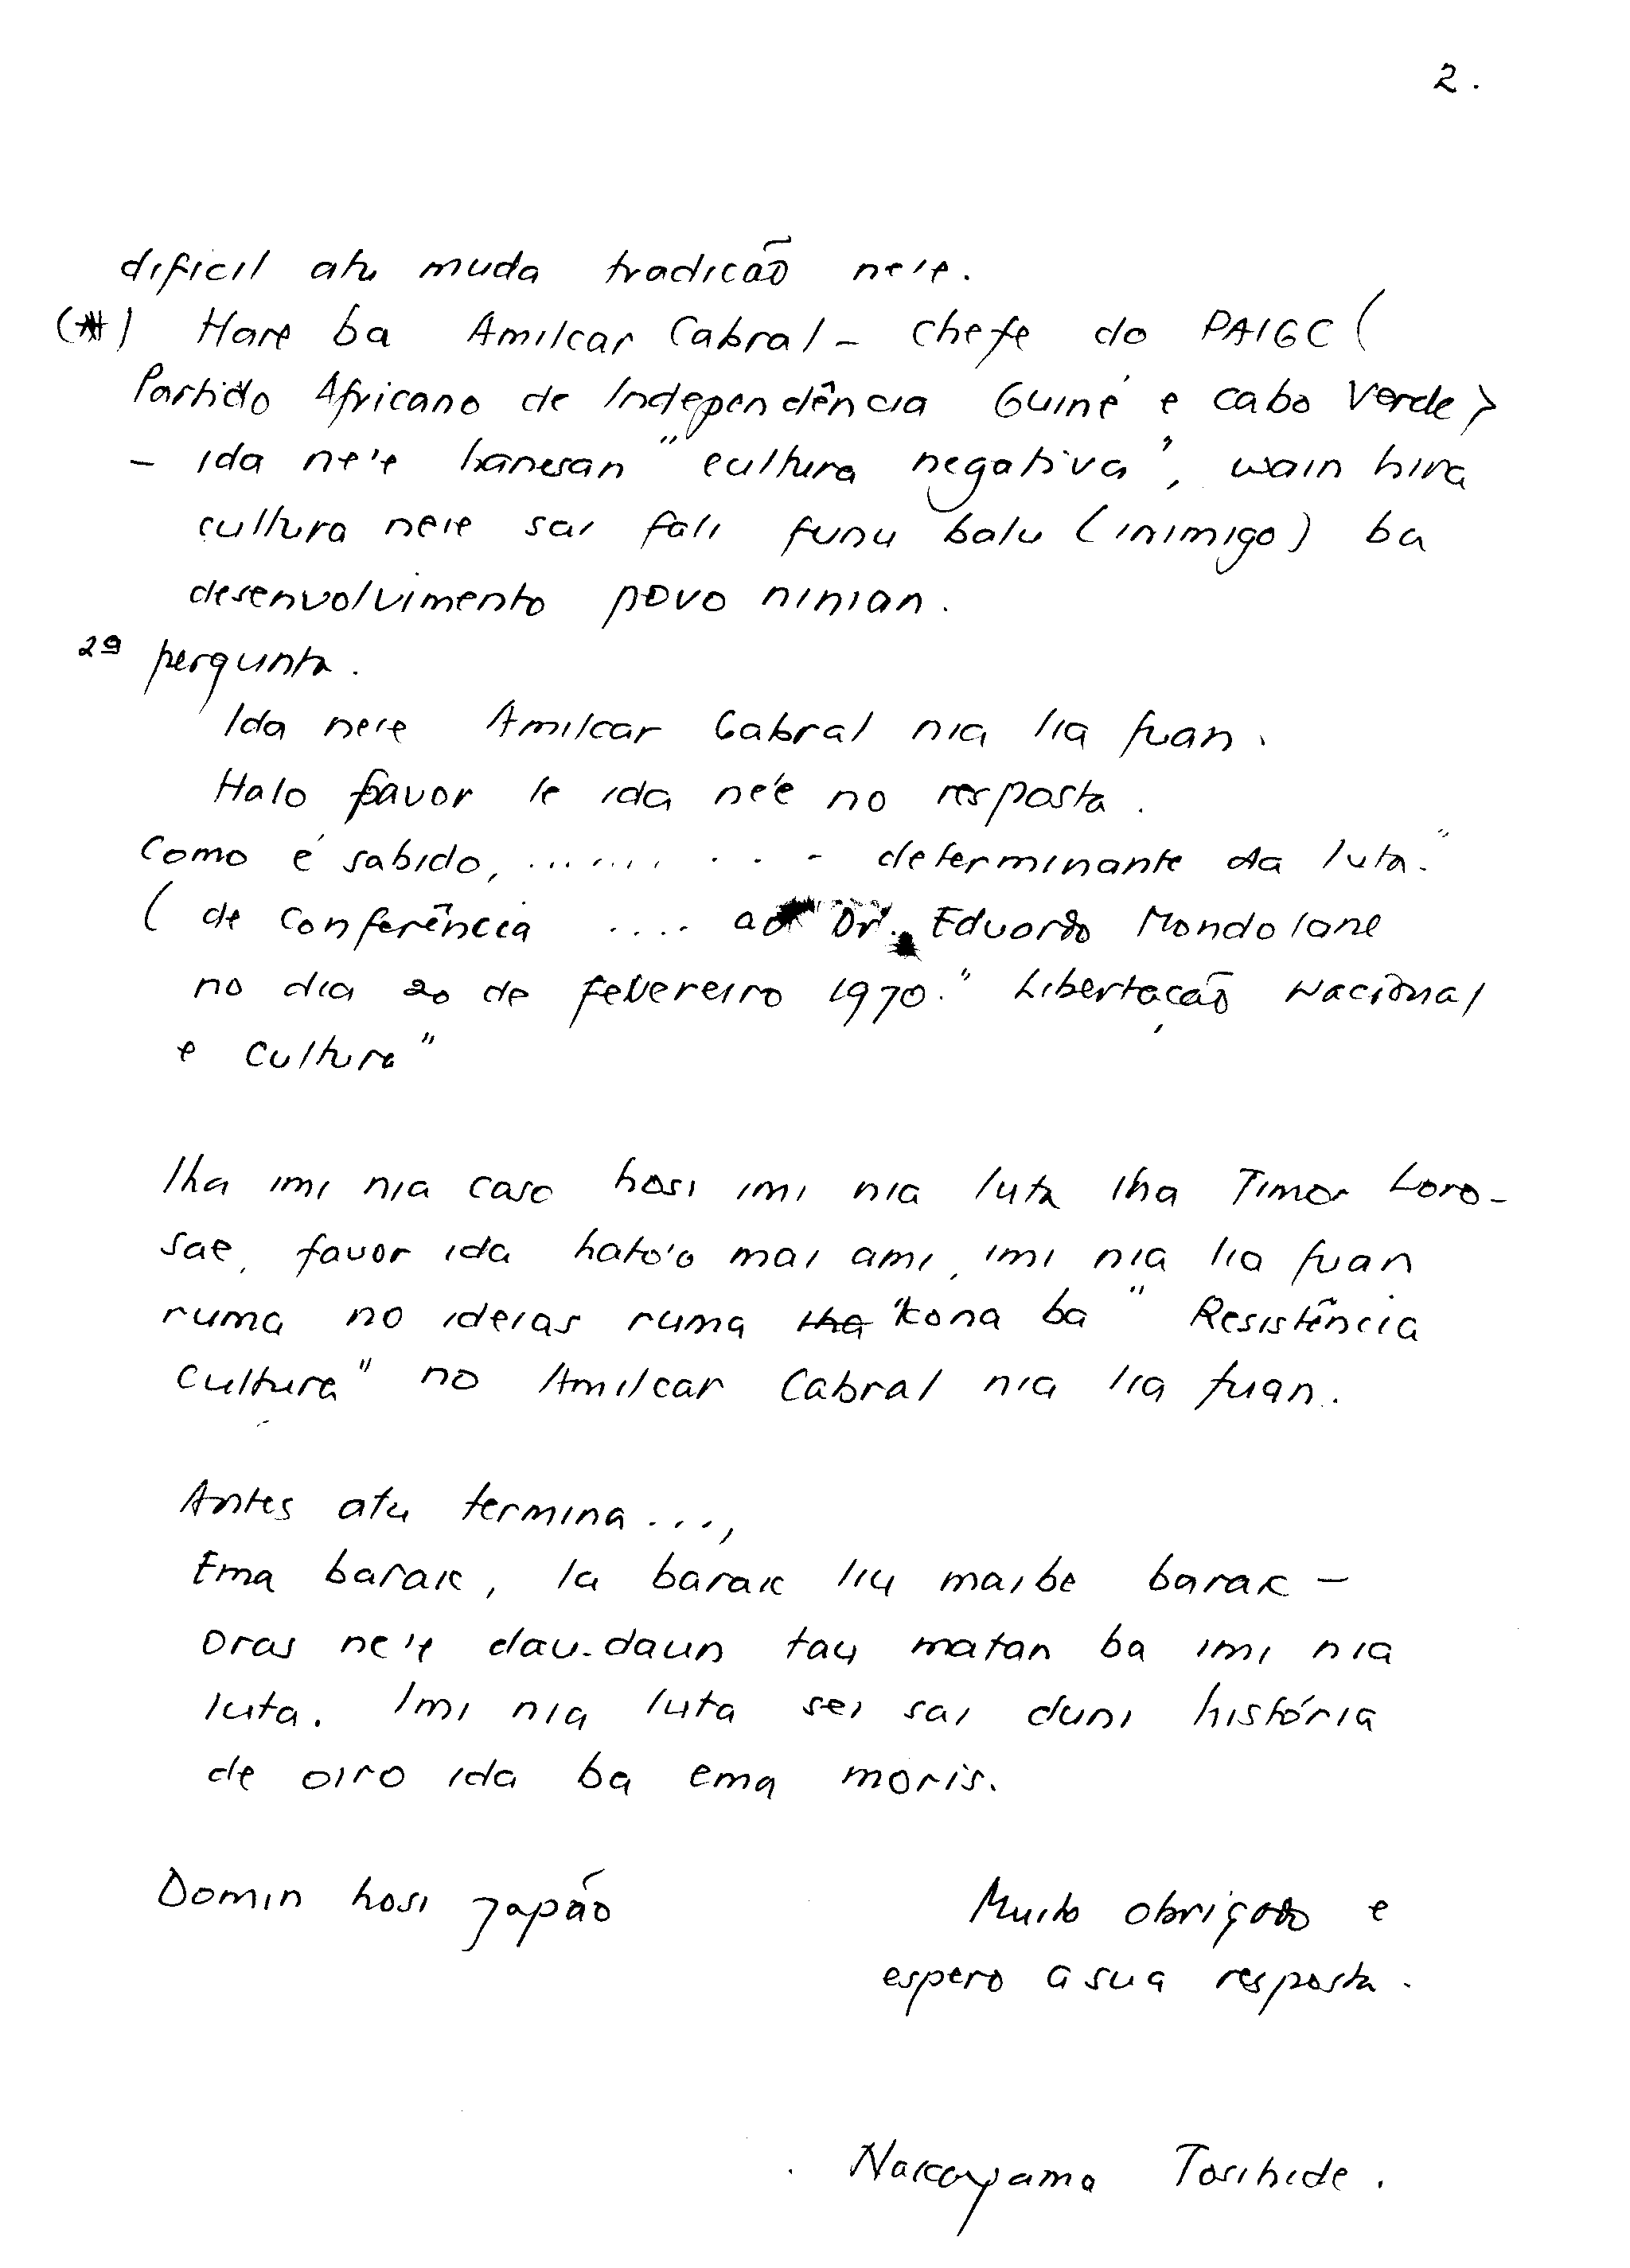 2.
dificil atu muda tradicão ne'e.
(*) Hare ba Amilcar Cabral - chefe do PAIGC (
Partido Africano de Independência Guiné e cabo Verde)
- ida ne'e hanesan "cultura negativa", wain hira
cultura ne'e sai fali funu balu (inimigo) ba
desenvolvimento povo ninian.
2ª pergunta.
Ida ne'e Amilcar Cabral nia lia fuan.
Halo favor le ida ne'e no resposta.
Como é sabido, .......... - determinante da luta."
( de conferência .... ao Dr. Eduardo Mondolane
no dia 20 de fevereiro 1970." Libertação Nacional
e Cultura"
Iha imi nia caso hosi imi nia luta iha Timor Loro-
sae, favor ida hato'o mai ami, imi nia lia fuan
ruma no ideias ruma iha kona ba "Resistência
Cultura" no Amilcar Cabral nia lia fuan.
Antes atu termina...,
Ema barak, la barak liu maibe barak -
oras ne'e dau-daun tau matan ba imi nia
luta. Imi nia luta sei sai duni história
de oiro ida ba ema moris.
Domin hosi Japão
Muito obrigado e
espero a sua resposta.
Nakayama Tosihide.